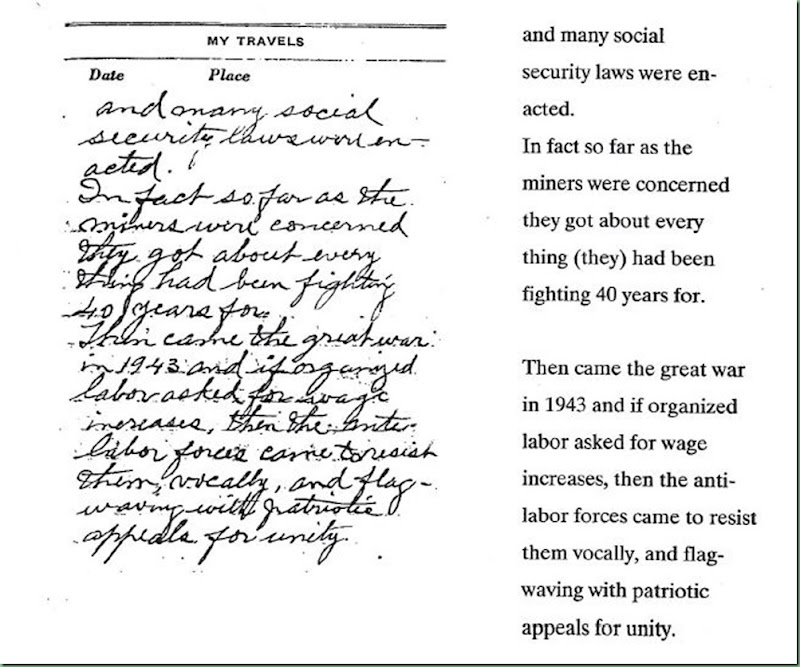 MY TRAVELS
Date Place
and many social
security laws were en-
acted.
In fact so far as the
miners were concerned
they got about every
thing had been fighting
40 years for.
Then came the great war
in 1943 and if organized
labor asked for wage
increases, then the anti-
labor forces came to resist
them, vocally, and flag-
waving with patriotic
appeals for unity.
and many social
security laws were en-
acted.
In fact so far as the
miners were concerned
they got about every
thing (they) had been
fighting 40 years for.
Then came the great war
in 1943 and if organized
labor asked for wage
increases, then the anti-
labor forces came to resist
them vocally, and flag-
waving with patriotic
appeals for unity.